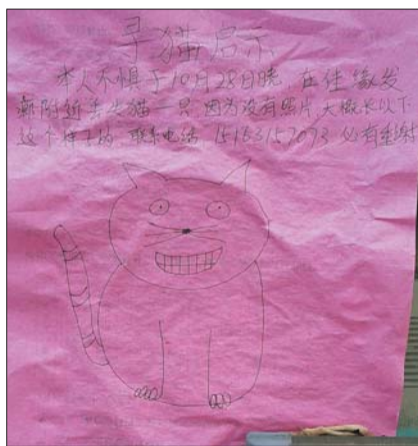 寻猫启示
本人不惧于10月28日晚 在佳缘发
廊附近丢失猫一只 因为没有照片 大概长以下
这个样子的 联系电话 15153157093 必有重谢